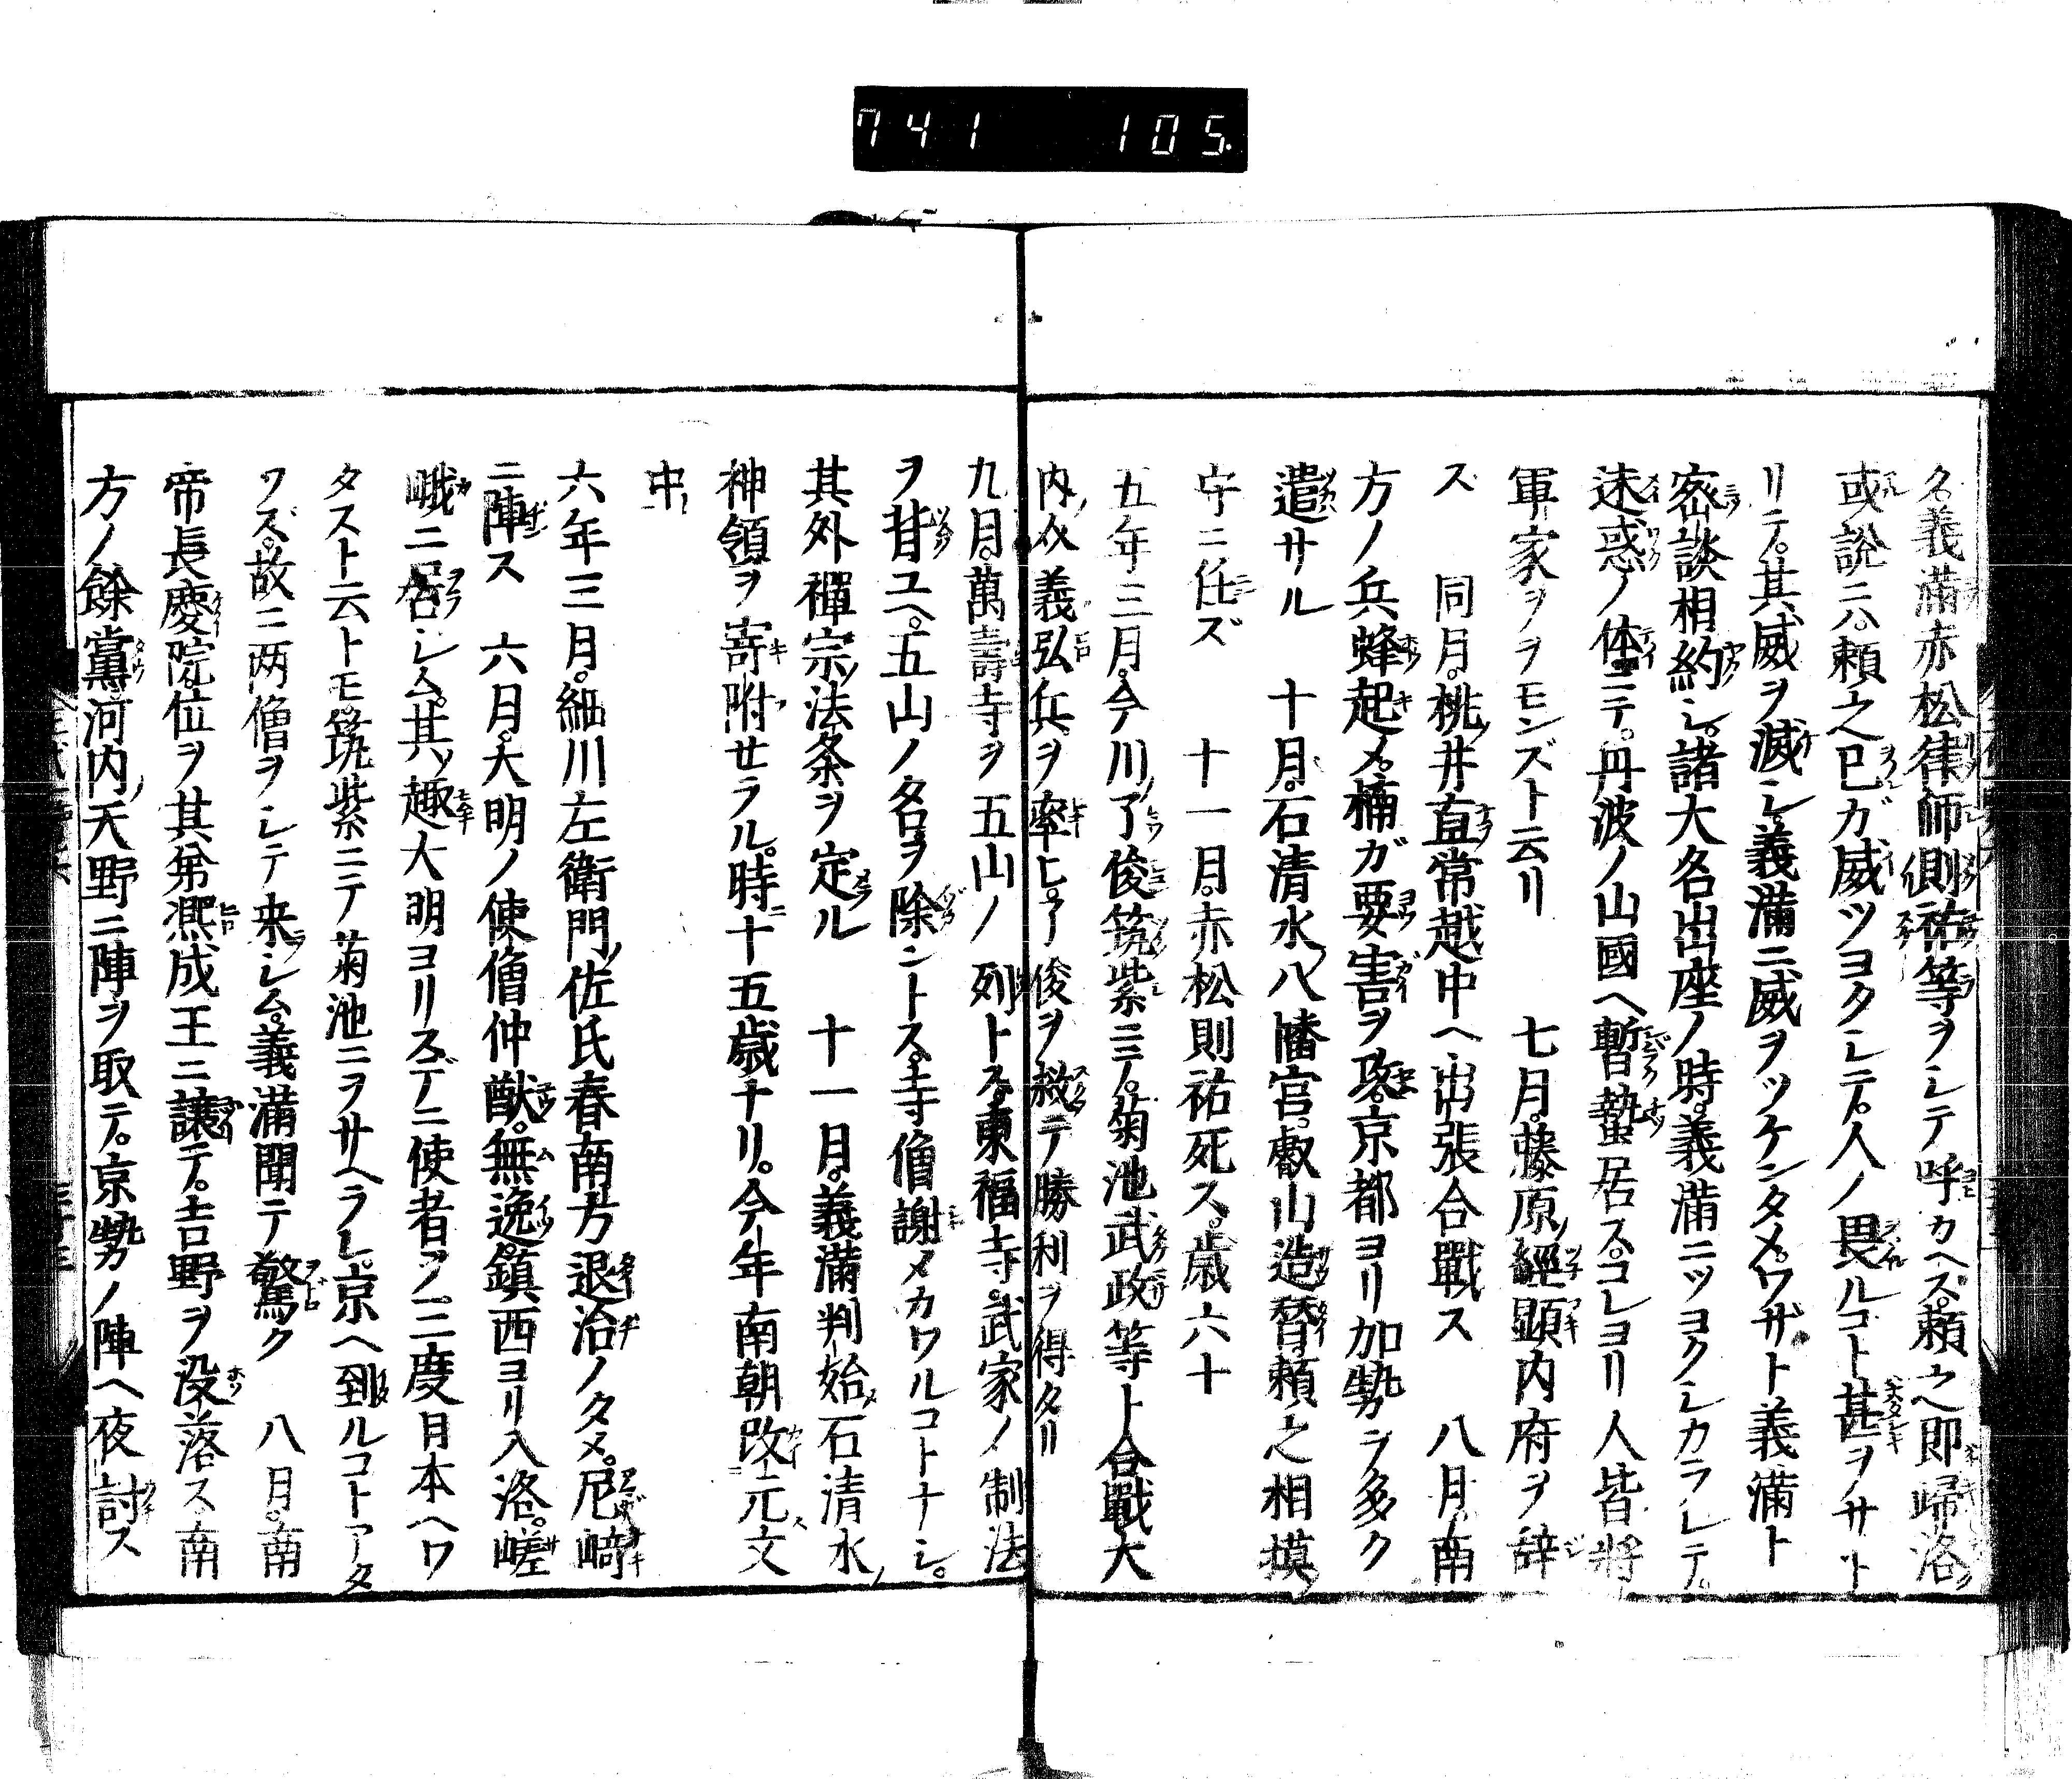 741 105.
名義滿赤松律師則祐等ヲシテ呼カヘス。頼之即歸洛
或説ニハ。頼之已ガ威ツヨクシテ。人ノ畏ルコト甚ヲサト
リテ。其威ヲ滅シ。義滿ニ威ヲツケンタメ。ワザト義滿ト
密談相約シ。諸大名出座ノ時。義滿ニツヨクシカラレテ。
迷惑ノ体ニテ。丹波ノ山國ヘ暫蟄居ス。コレヨリ人皆將
軍家ヲヲモンズト云リ 七月。藤原經顕内府ヲ辞
ス 同月。桃井直常越中ヘ出張合戰ス 八月。南
方ノ兵蜂起メ。楠ガ要害ヲ攻。京都ヨリ加勢ヲ多ク
遣サル 十月。石清水八幡宮。叡山造替頼之相摸
守ニ任ズ 十一月。赤松則祐死ス。歳六十
五年三月。今川了俊筑紫ニテ。菊池武政等ト合戰大
内ノ義弘兵ヲ率ヒ。了俊ヲ救テ勝利ヲ得タリ
九月。萬壽寺ヲ五山ノ列トス。東福寺。武家ノ制法
ヲ背ユヘ。五山ノ名ヲ除ントス。寺僧謝メカワルコトナシ。
其外禪宗ノ法条ヲ定ル 十一月。義滿判始石清水ノ
神領ヲ寄附セラル。時ニ十五歳ナリ。今年南朝改元文
中
六年三月。細川左衛門佐氏春南方退治ノタメ。尼﨑
ニ陣ス 六月。大明ノ使僧仲猷。無逸。鎮西ヨリ入洛。嵯
峨ニ居シム。其趣大明ヨリスデニ使者ヲ二三度日本ヘワ
タスト云トモ。筑紫ニテ菊池ニヲサヘラレ。京ヘ到ルコトアタ
ワズ。故ニ両僧ヲシテ来ラシム。義滿聞テ驚ク 八月。南
帝長慶院。位ヲ其弟凞成王ニ譲テ。吉野ヲ没落ス南
方ノ餘黨河内ノ天野ニ陣ヲ取テ。京勢ノ陣ヘ夜討ス